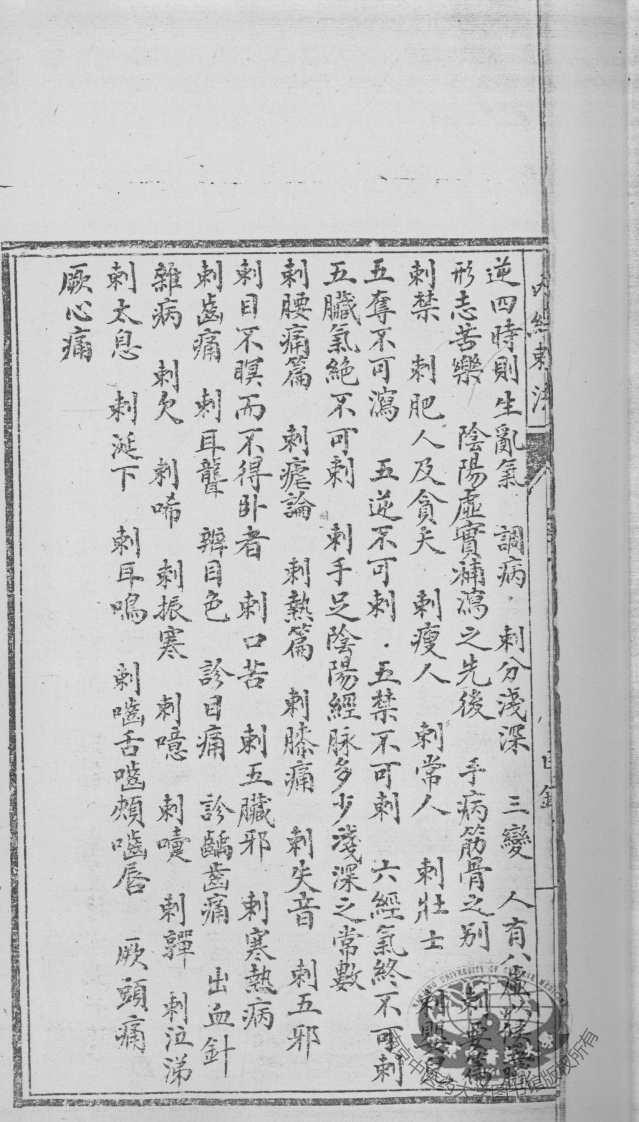 內經刺法
目錄
逆四時則生亂氣 調病 刺分淺深 三變 人有八虛以候
形志苦樂 陰陽虛實補瀉之先後 手病筋骨之別 刺要
刺禁 刺肥人及貪夫 刺瘦人 刺常人 刺壯士 刺嬰兒
五奪不可瀉 五逆不可刺 五禁不可刺 六經氣終不可刺
五臟氣絶不可刺 刺手足陰陽經脉多少淺深之常數
刺腰痛篇 刺瘧論 刺熱篇 刺膝痛 刺失音 刺五邪
刺目不瞑而不得卧者 刺口苦 刺五臟邪 刺寒熱病
刺齒痛 刺耳聾 辨目色 診目痛 診齲齒痛 出血針
雜病 刺欠 刺唏 刺振寒 刺噫 刺嚏 刺嚲 刺泣涕
刺太息 刺涎下 刺耳鳴 刺嚙舌嚙頰嚙唇 厥頭痛
厥心痛